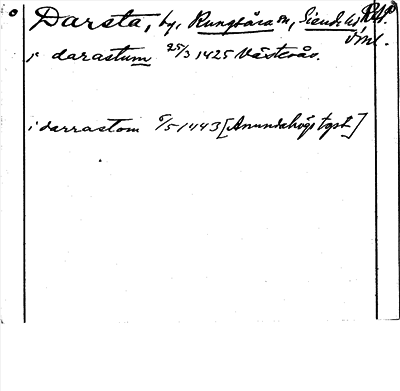 Darsta, by, Rungtuna sn, Siende hd,
Vsml.
i darastum 25/3 1425 Västerås.
i darrastom 6/5 1443 [Anundahögs tgst]